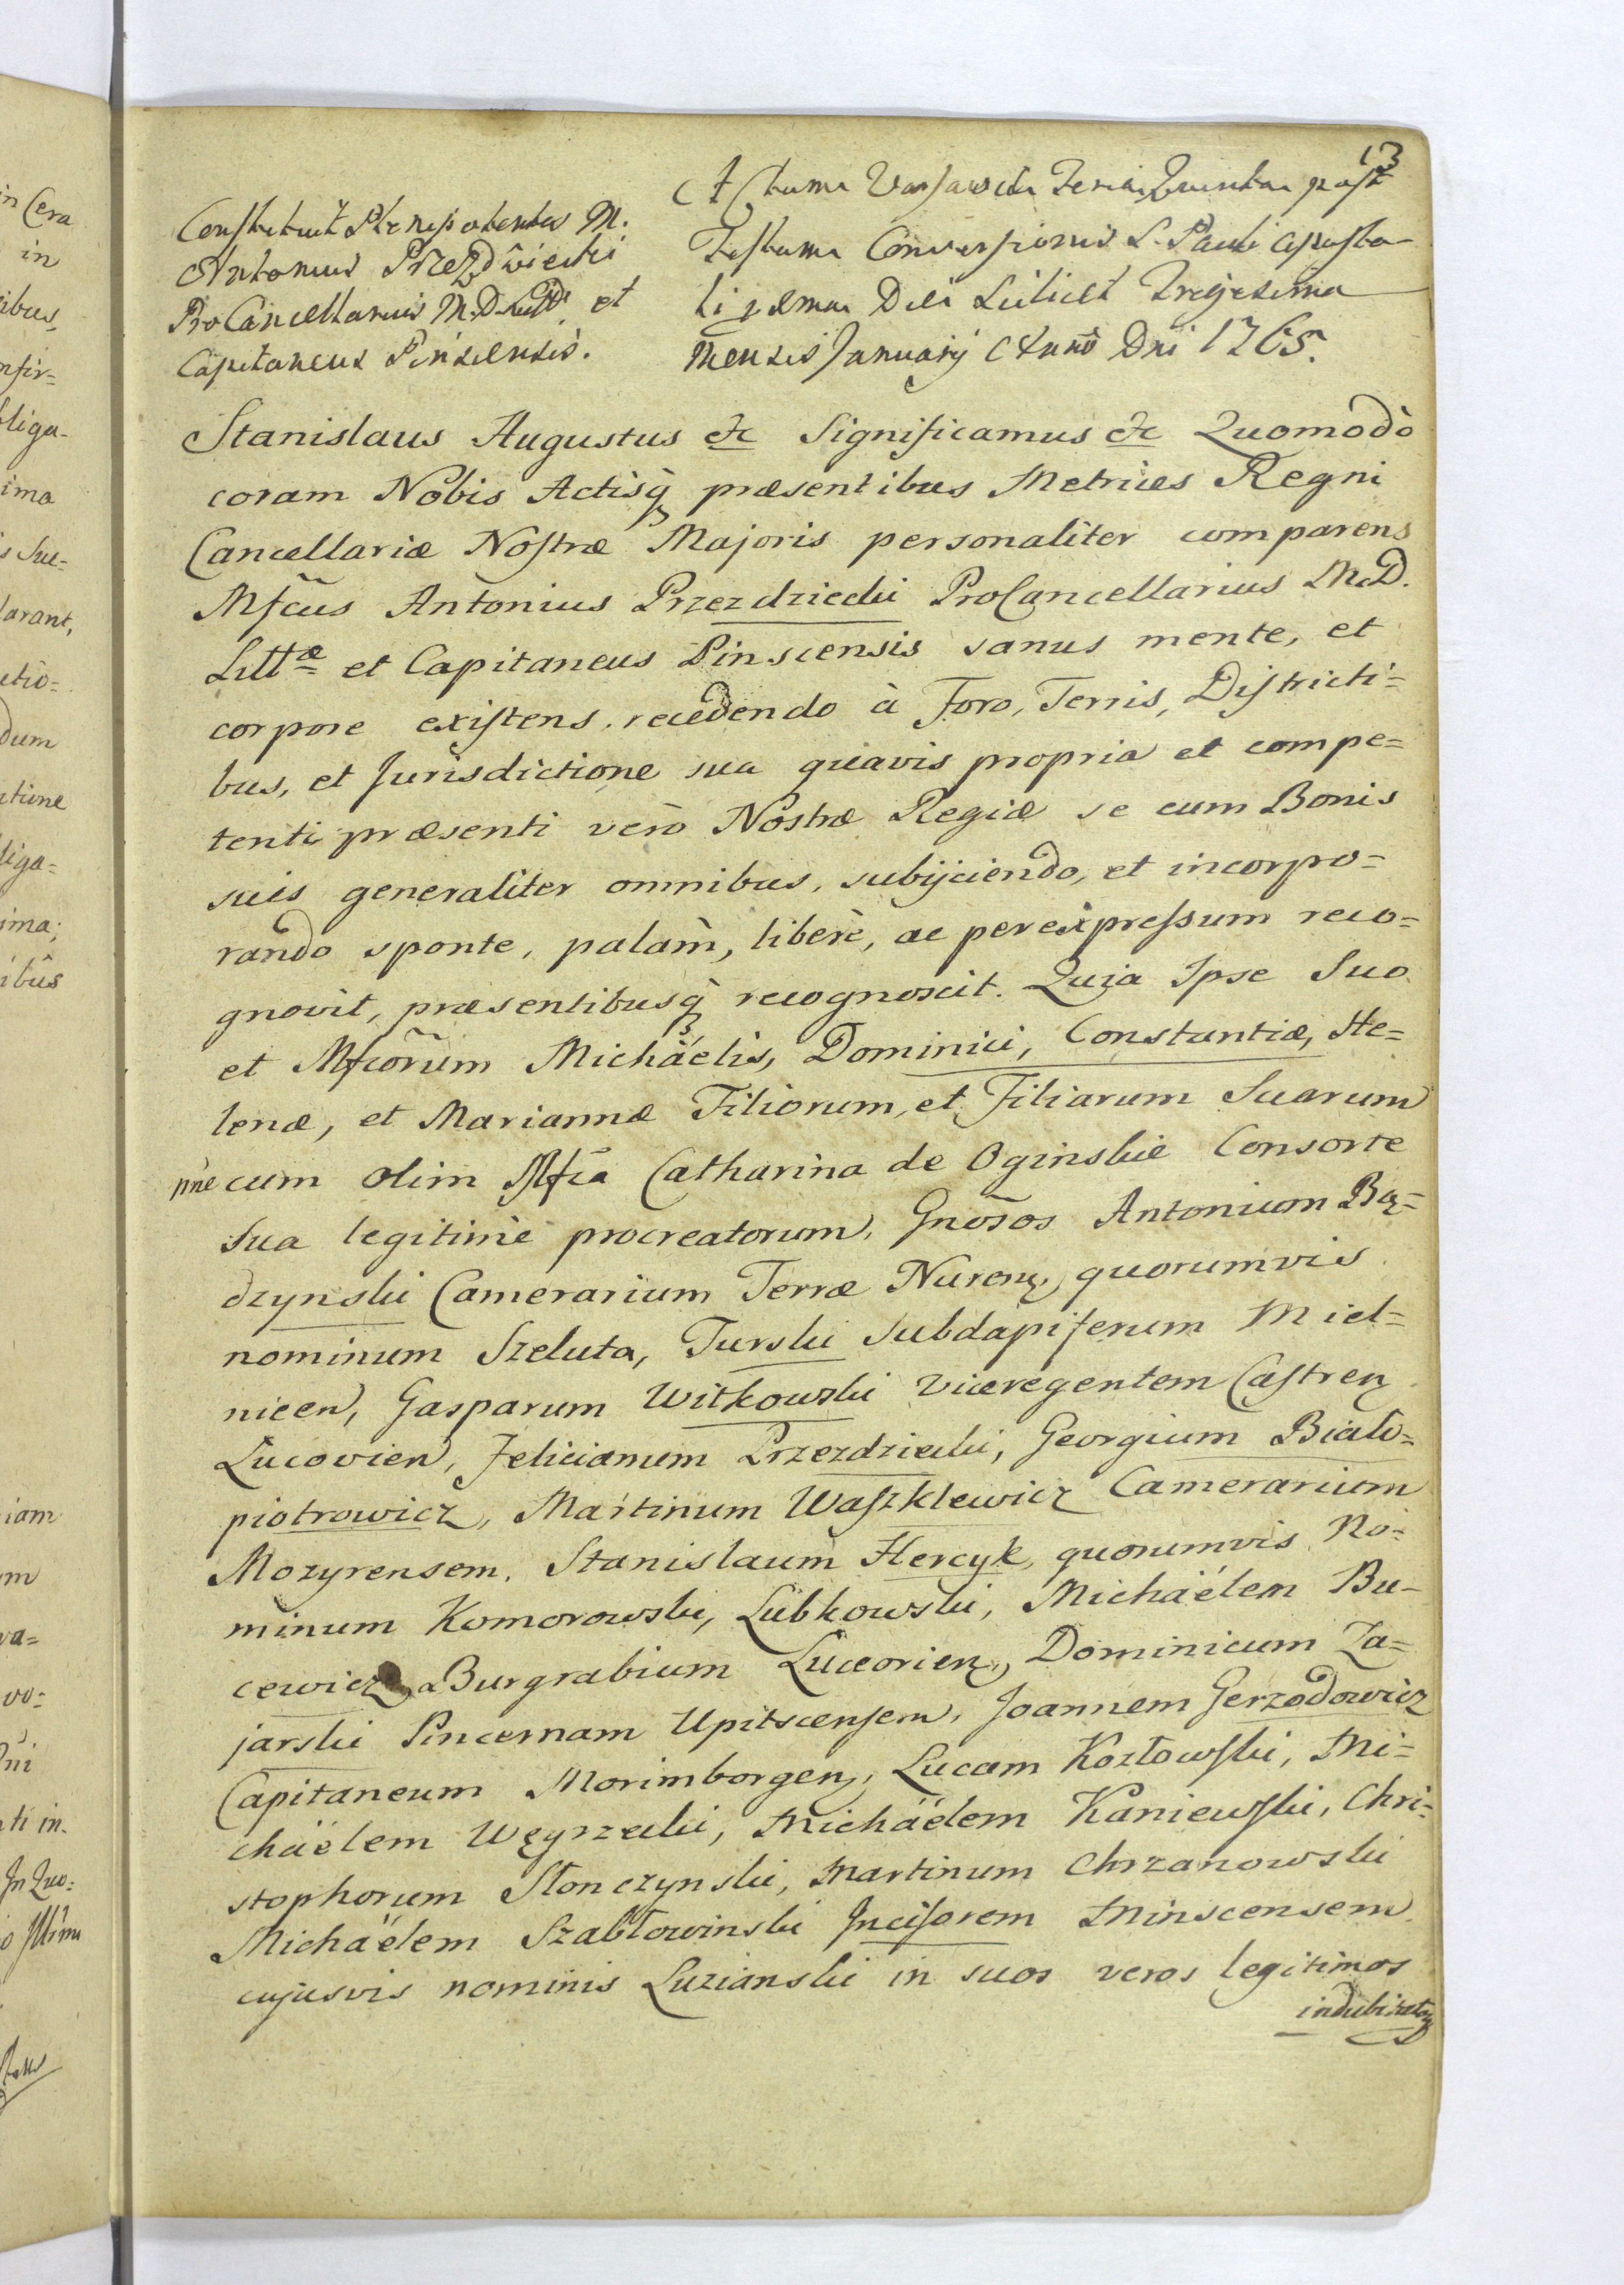 13
Constituit Plenipotentes M.
Antonius Przezdziecki
ProCancellarius M.D. Litt. et
Capitaneus Pinscensis.
Actum Varsaviæ Feria Quinta post
Festum Conversionis S. Pauli Aposto-
li Die Scilicet Trigesima
Mensis Januarij Anno Dni 1765.
Stanislaus Augustus &c Significamus &c Quomodò
coram Nobis Actisq̀ præsentibus Metrices Regni
Cancellariæ Nostræ Majoris personaliter comparens
Mfcus Antonius Przezdziecki ProCancellarius M.D.
Littæ et Capitaneus Pinscensis sanus mente, et
corpore existens, recedendo à Foro, Terris, Districti=
bus, et Jurisdictione sua quavis propria et compe=
tenti præsenti verò Nostræ Regiæ se cum Bonis
suis generaliter omnibus, subijciendo, et incorpo=
rando sponte, palàm, liberè, ac per expressum reco=
gnovit, præsentibusq̀ recognoscit. Quia Ipse Suo
et Mfcorum Michäelis, Dominici, Constantiæ, He=
lenæ, et Mariannæ Filiorum, et Filiarum Suarum
pne cum olim Mfca Catharina de Oginskie Consorte
sua legitimè procreatorum, Gnosos Antonium Bą=
dzynski Camerarium Terræ Nuren, quorumvis
nominum Szeluta, Turski Subdapiferum Miel=
nicen, Gasparum Witkowski Viceregentem Castren
Lucovien, Felicianum Przezdziecki, Georgium Biało=
piotrowicz, Martinum Waszklewicz Camerarium
Mozyrensem, Stanislaum Hercyk, quorumvis No=
minum Komorowski, Lubkowski, Michäelem Bu-
cewicz Burgrabium Luceorien, Dominicum Za=
jarski Pincernam Upitscensem, Joannem Gerzodowicz
Capitaneum Morimborgen, Lucam Kozłowski, Mi=
chäelem Węyrzecki, Michäelem Kaniewski, Chri=
stophorum Słonczynski, Martinum Chrzanowski
Michäelem Szabłowinski Incisorem Minscensem
cujusvis nominis Luzianski in suos veros legitimos
indubitatos